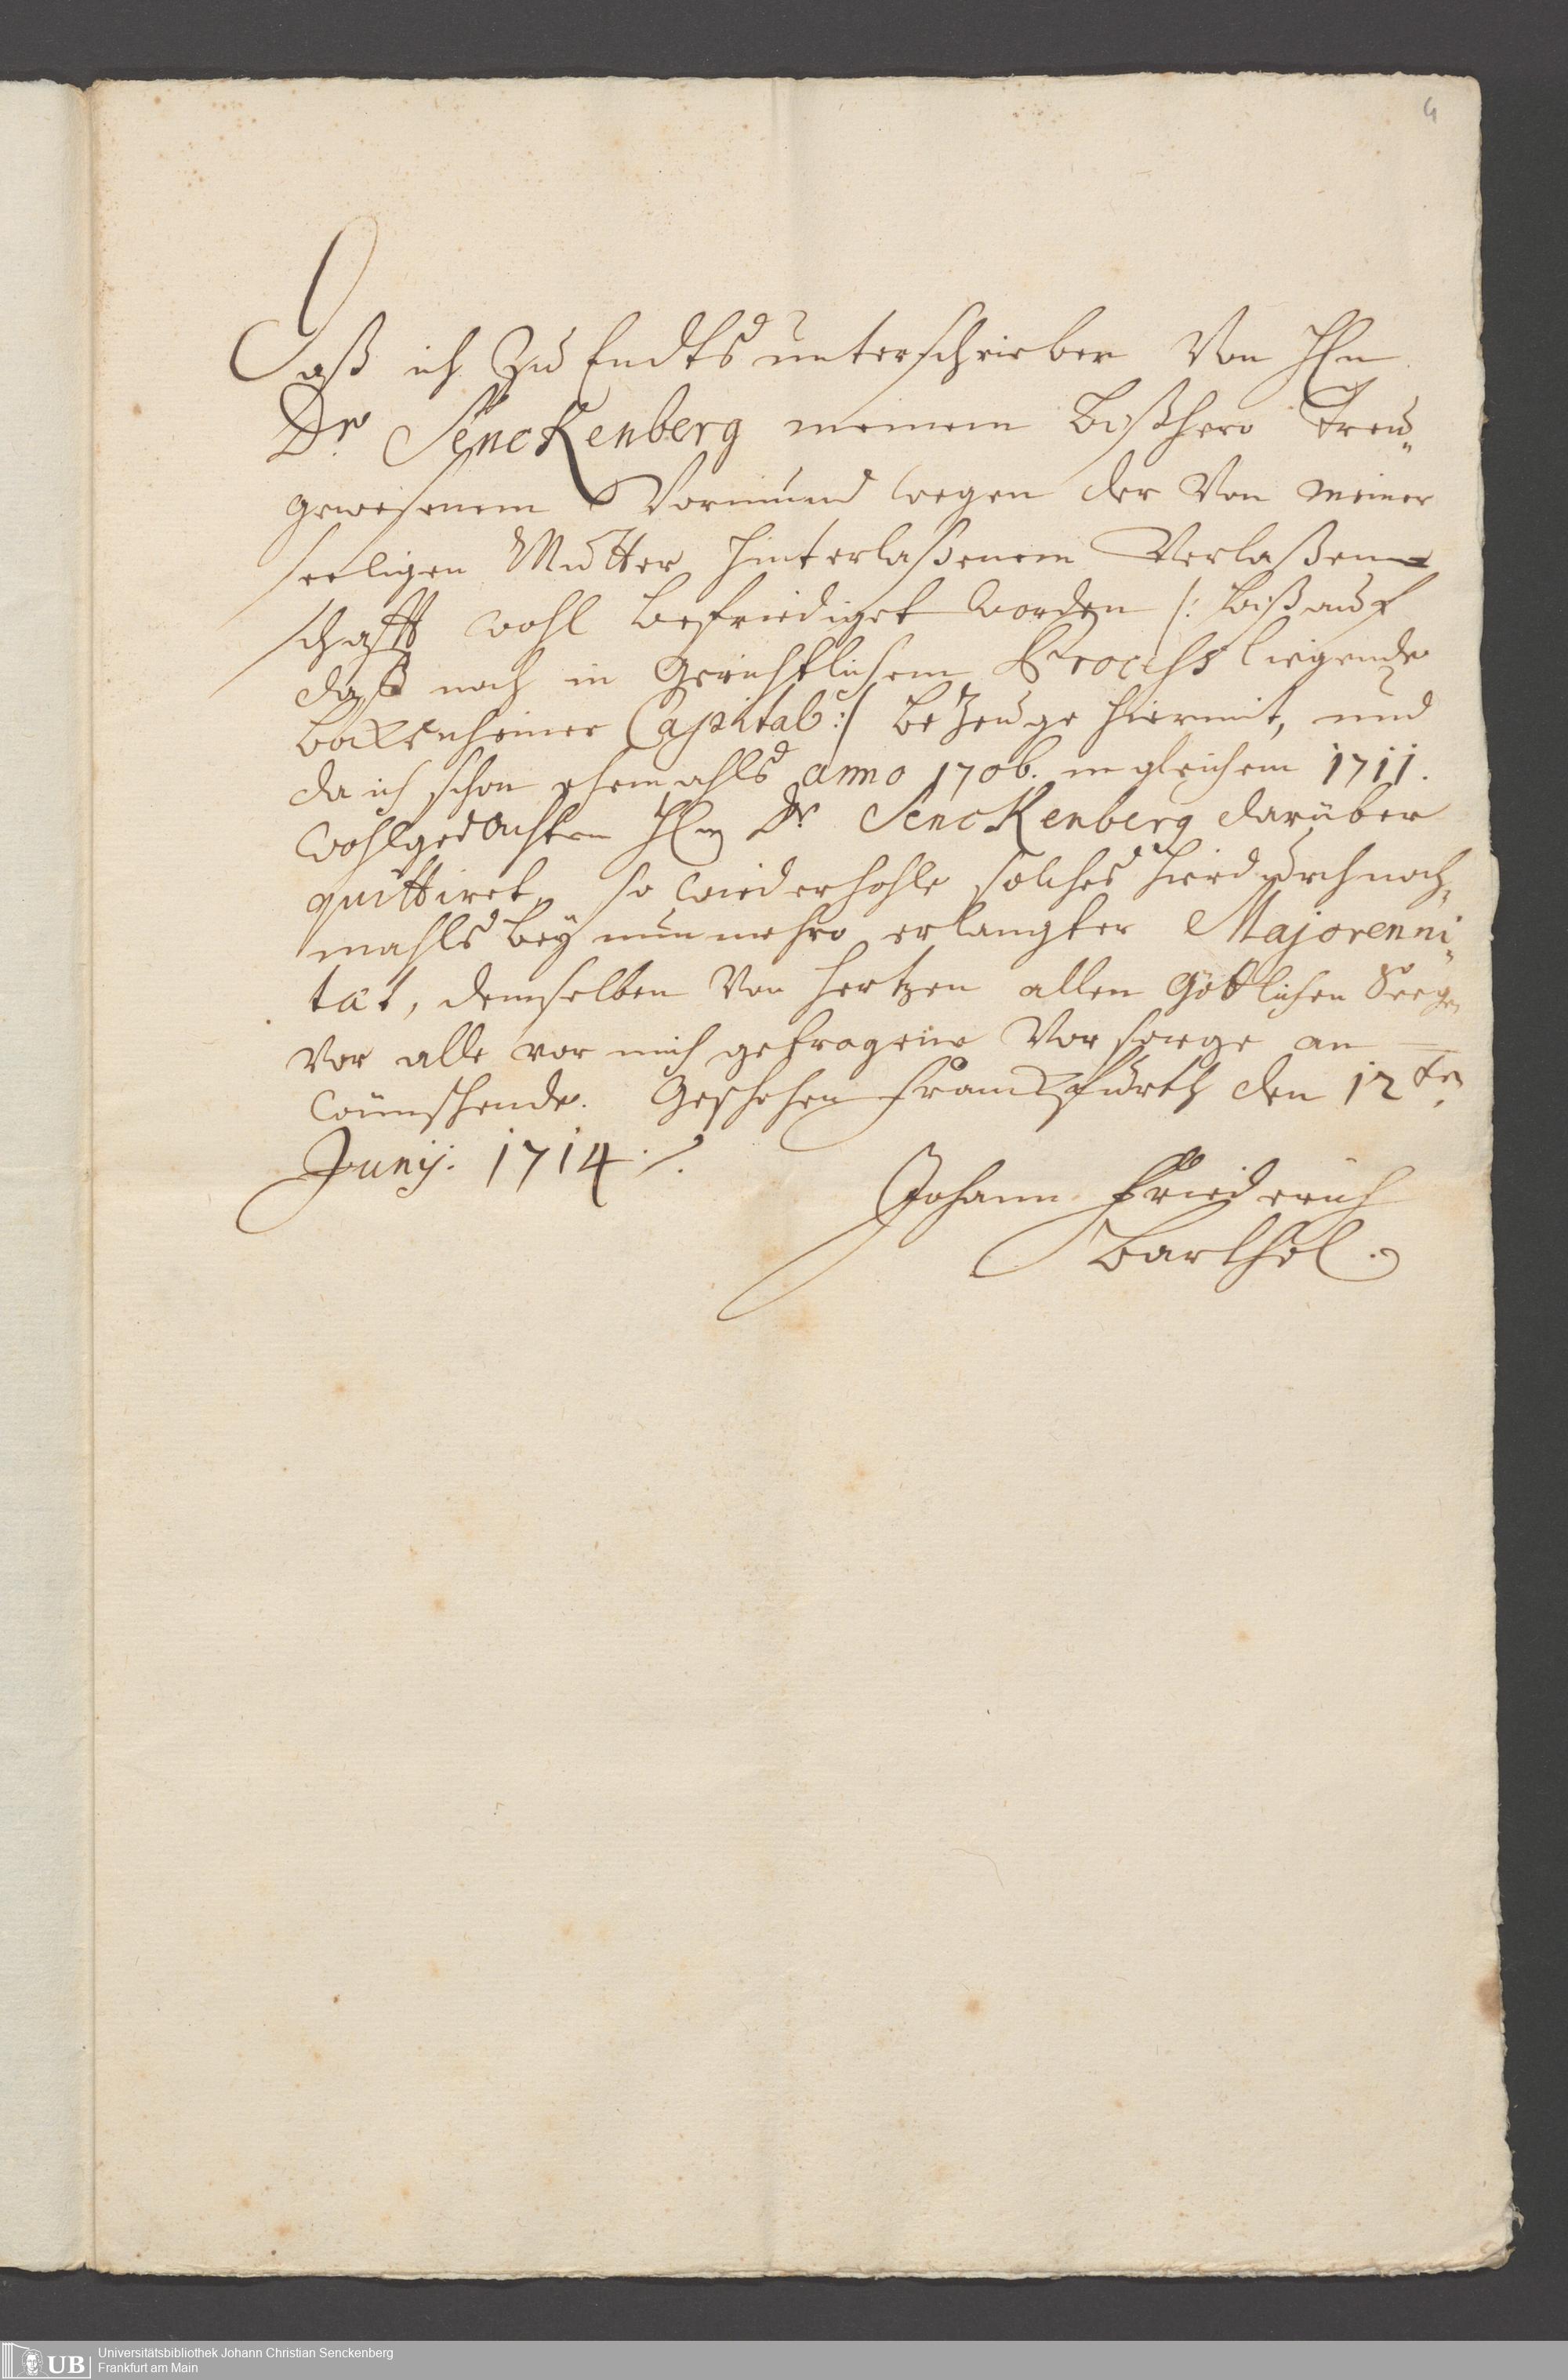 4
Daß ich Zu Endts unterschrieber Von Hln
Dr. Senckenberg meinem bißhero treu„
gewesenem Vormund wegen der Von meiner
seeligen Mutter hinterlaßenem Verlaßen=
schafft wohl befriediget worden /: biß auf
daß noch in Gerichtlichem Process liegende
Capital :/ beZeuge hiermit, und
da ich schon ehemahls anno 1706. ingleichem 1711.
wohlgedachtem Hln Dr. Senckenberg darüber
quittiret, so wiederhohle solches hierdurch noch„
mahls bey nunmehro erlangter Majorenni„
tät, demselben Von Hertzen allen Göttlichen Seegen
Vor alle vor mich getragene Vorsorge an=
wünschende. Geschehen Franckfurth den 12ten
Junij. 1714 ./.
Johann Friederich
Barthol.
UB
Universitätsbibliothek Johann Christian Senckenberg
Frankfurt am Main